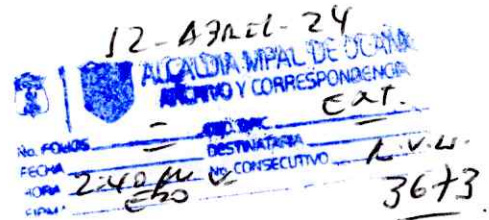 12-ABRIL-24
ALCALDIA MPAL DE OCAÑA
ARCHIVO Y CORRESPONDENCIA
EXT.
No. FOLIOS
FECHA DESTINATARIA
HORA 2:40 PM No. CONSECUTIVO
FIRMA 3673